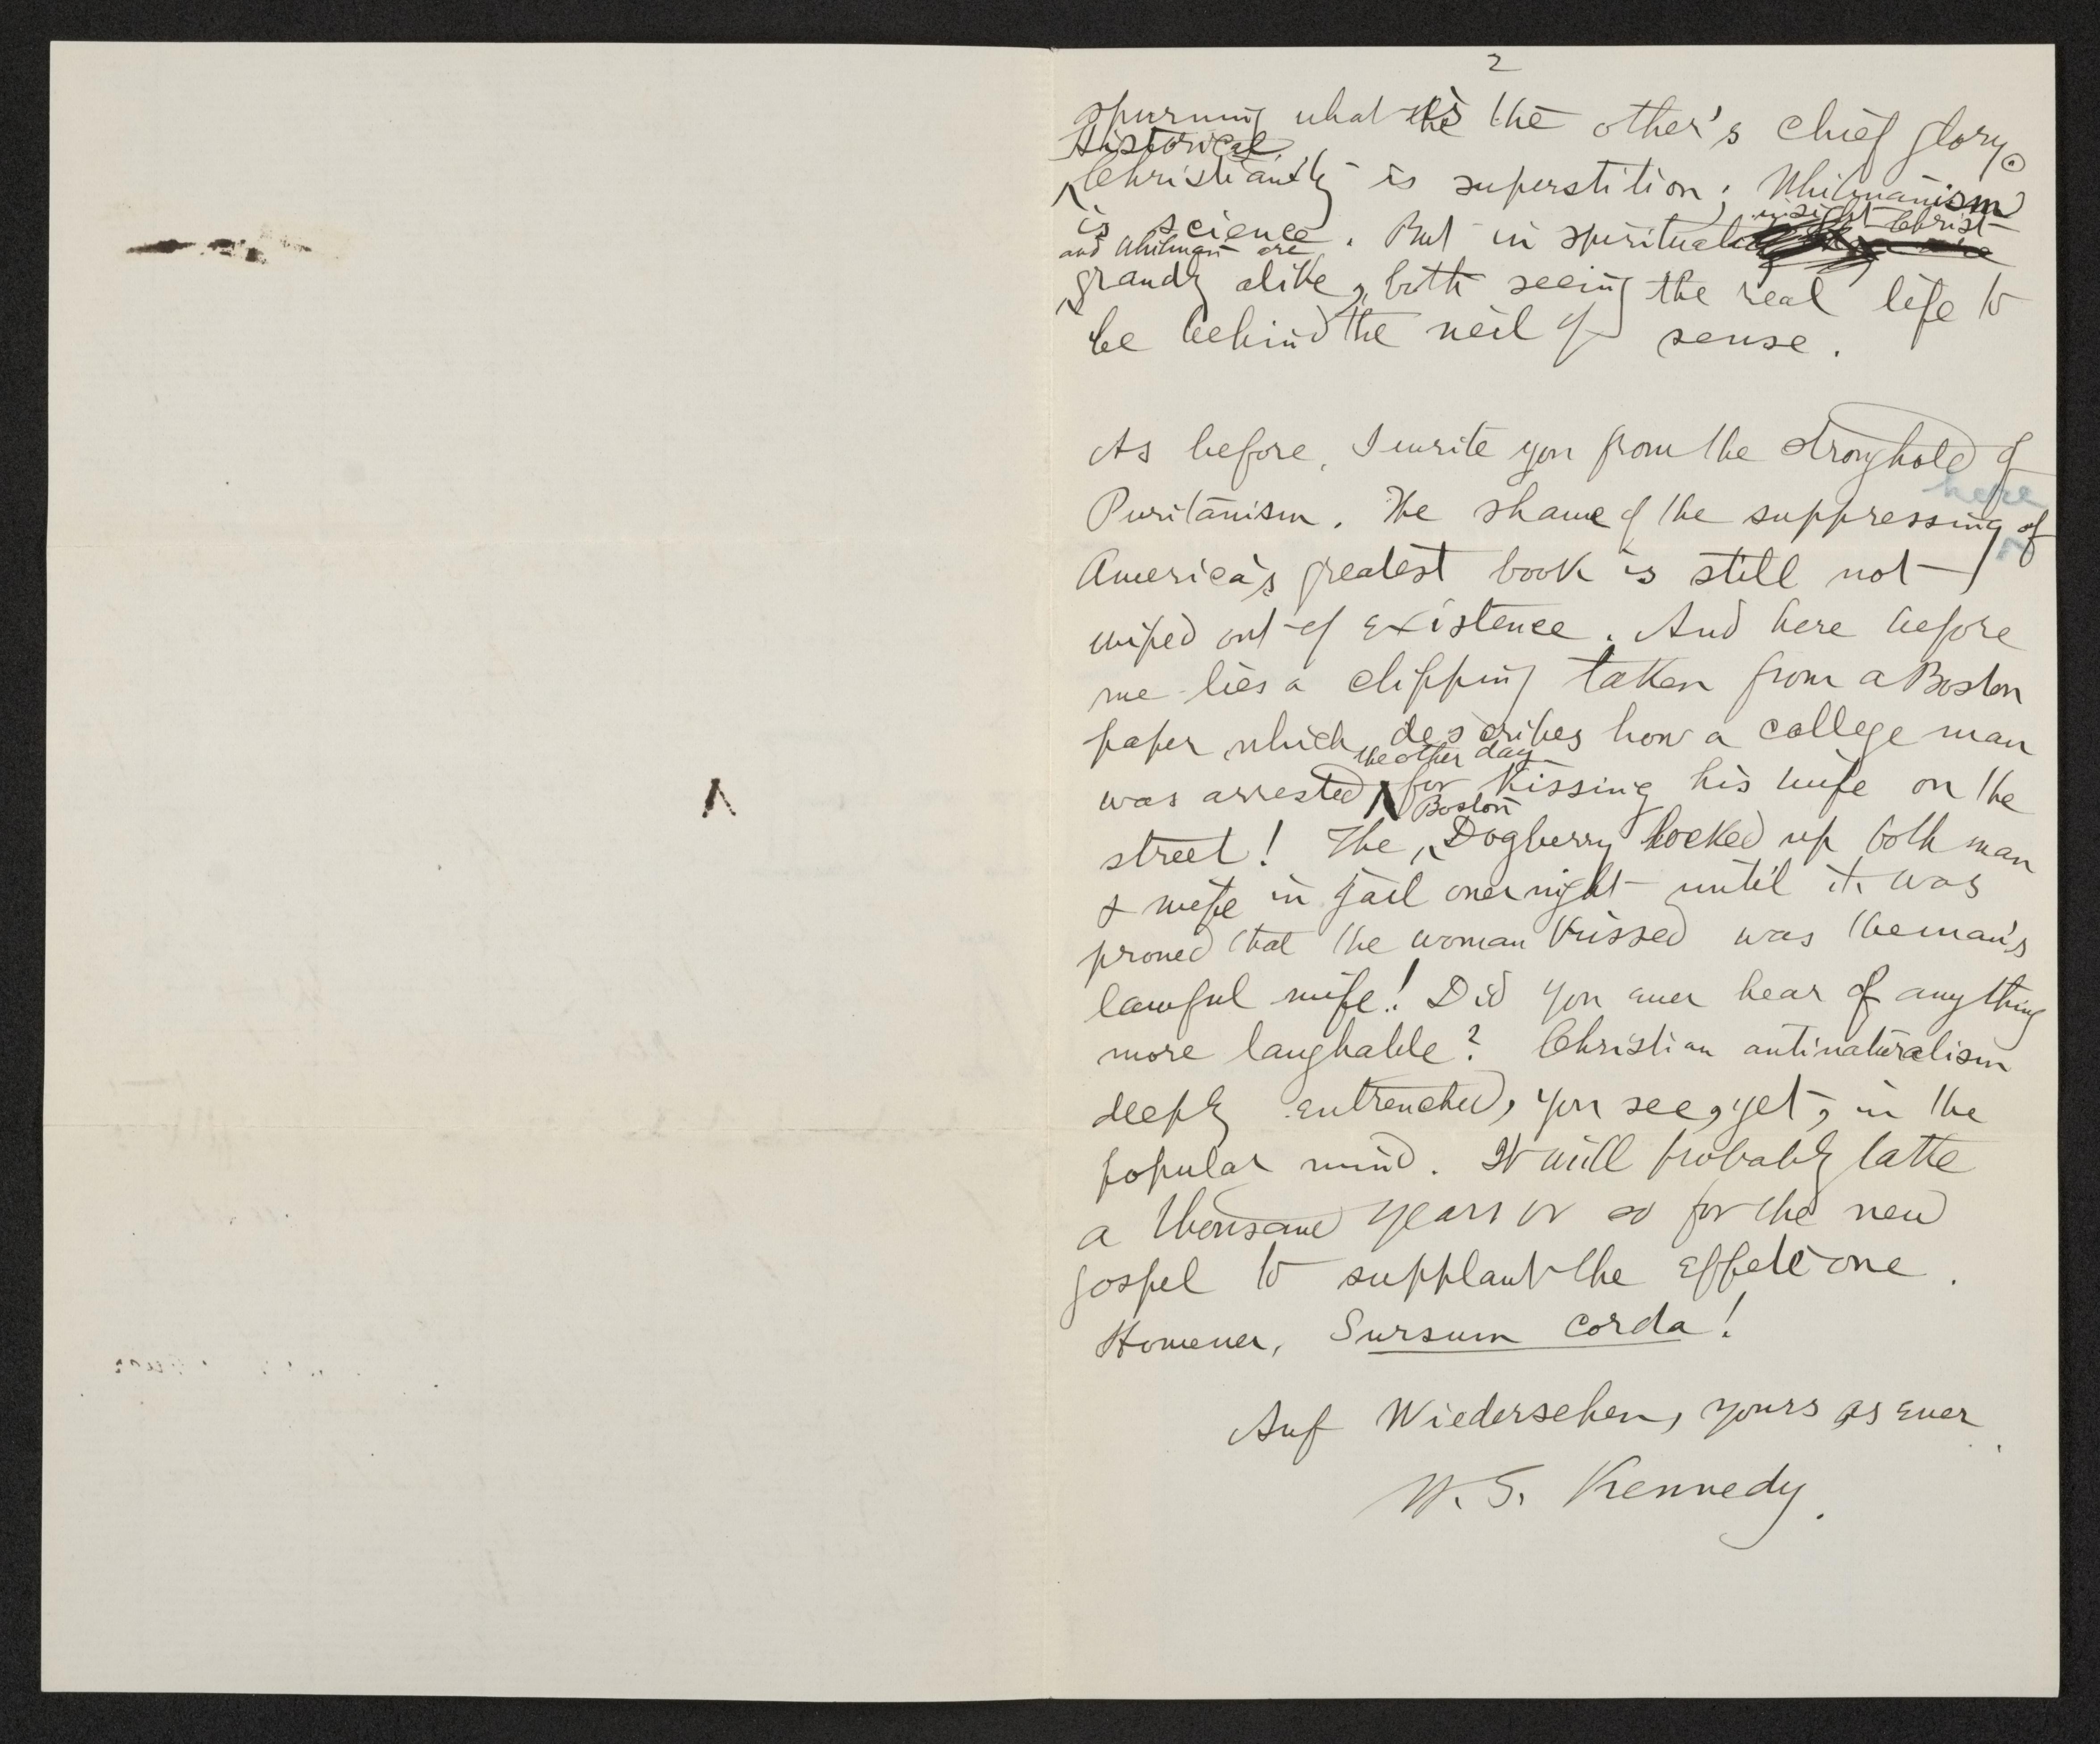 2
spurning what is the other's chief glory.
Historical
Christianity is superstition; Whitmanism
is science. But in spiritual insight Christ
and Whitman are
grandly alike, both seeing the real life to
be behind the veil of sense.
As before, I write you from the stronghold of
here
Puritanism. The shame of the suppressing of
America's greatest book is still not
wiped out of existence. And here before
me lies a clipping taken from a Boston
paper which describes how a college man
the other day
was arrested for kissing his wife on the
Boston
street! The Dogberry locked up both man
& wife in jail over night until it was
proved that the woman kissed was the man's
lawful wife! Did you ever hear of anything
more laughable? Christian antinaturalism
deeply entrenched, you see, yet, in the
popular mind. It will probably take
a thousand years or so for the new
gospel to supplant the effete one.
However, Sursum corda!
Auf Wiedersehen, yours as ever
W. S. Kennedy.